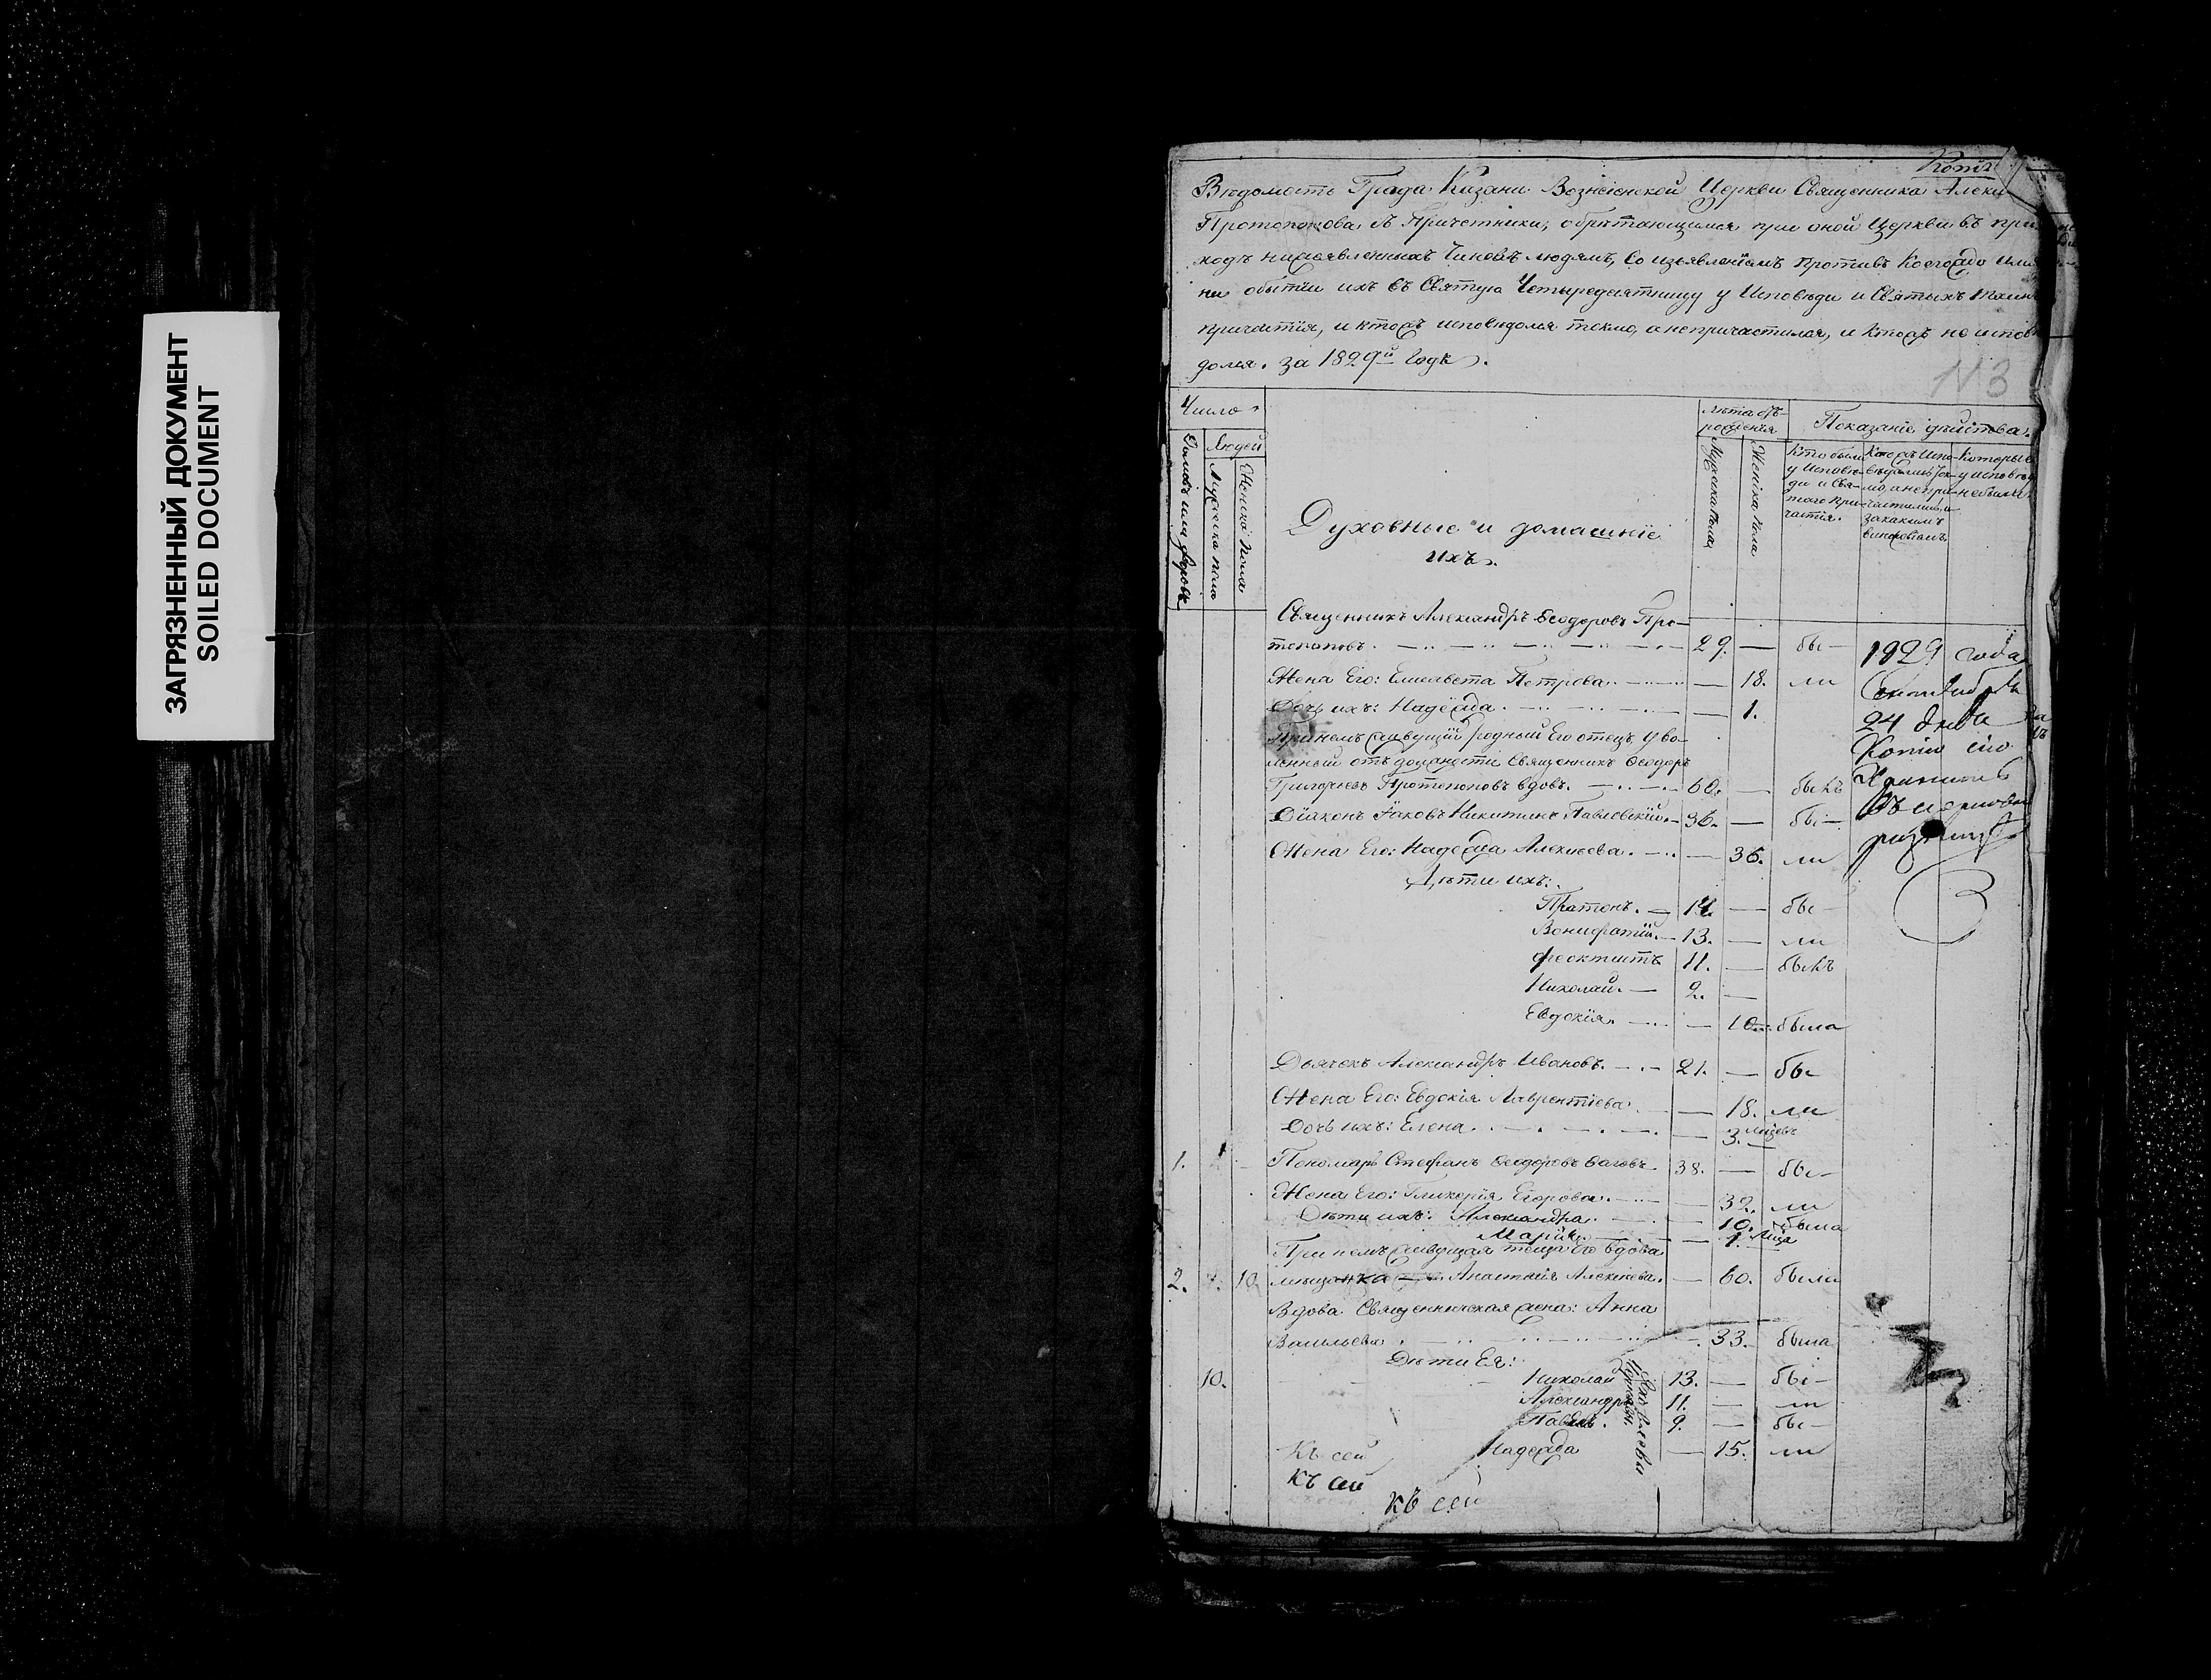 ЗАГРЯЗНЕННЫЙ ДОКУМЕНТ
SOILED DOCUMENT
Копія
Вѣдомость Града Казани Вознесенской Церкви Священника Алекс
Протопопова съ Причетники, обрѣтающимся при оной Церкви въ при
ходѣ нижеявленныхъ чиновъ людямъ, со изъявленіемъ противъ коегождо име
ни о бытіи ихъ въ Святую Четыредесятницу у Исповѣди и Святыхъ Таинъ
причастія, и ктожъ исповѣдался токмо, а не причастился, и ктожъ не испов
дался. за 1829й Годъ.
N 3
Число
Людей
Домовъ или дворовъ
Мужеска пола
Женска пола
Духовные и домашніе
ихъ.
лѣта отъ
рожденія
Мужеска пола
Женска пола
Показаніе дѣйства.
Кто были у Исповѣди и Святаго причастія.
Ктожъ Исповѣдались токмо, а не причастились, и за какимъ винословіемъ.
Которые у исповѣди не были
Священникъ Александръ Ѳеодоровъ Про-
топоповъ. 29. — бы-
Жена Его: Елисавета Петрова. — 18. ли
Дочь ихъ: Надежда. — 1.
При немъ живущій родный Его отецъ уво-
ленный отъ должности Священникъ Ѳеодоръ
Григорьевъ Протопоповъ вдовъ. 60. — былъ
Діаконъ Іаковъ Никитинъ Павловскій. 36. — бы-
Жена Его: Надежда Алексѣева. — 36. ли
1829 года
Сентября
24 дня
Копію сію
Хранить
Въ церковной
ризницѣ
Дѣти ихъ:
Платонъ. 14. — бы-
Вонифатій. 13. — ли
Феоктистъ 11. — былъ
Николай. 2. —
Евдокія. — 10. была
Дьячекъ Александръ Ивановъ. 21. — бы-
Жена Его: Евдокія Лаврентіева. — 18. ли
Дочь ихъ: Елена. — 3. мѣсяцевъ
1. Пономарь Стефанъ Ѳеодоровъ 38. — бы-
Жена Его: Гликерія Егорова. — 32. ли
Дѣти ихъ: Александра. — 10. была
Марія. — 1.
При немъ живущая теща Его вдова
2. 10. мѣщанка Анастасія Алексѣева. — 60. были
Вдова Священническая жена: Анна
Васильева. 33. была
Дѣти Ея:
10. Николай 13. — бы-
Александръ 11. — ли
Павелъ. 9. — бы-
Надежда — 15. ли
Къ сей
Къ сей
Къ сей